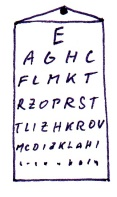 E
AGHC
FLMKT
RZOPRST
TLIZHKROV
MCDIZKLAHI